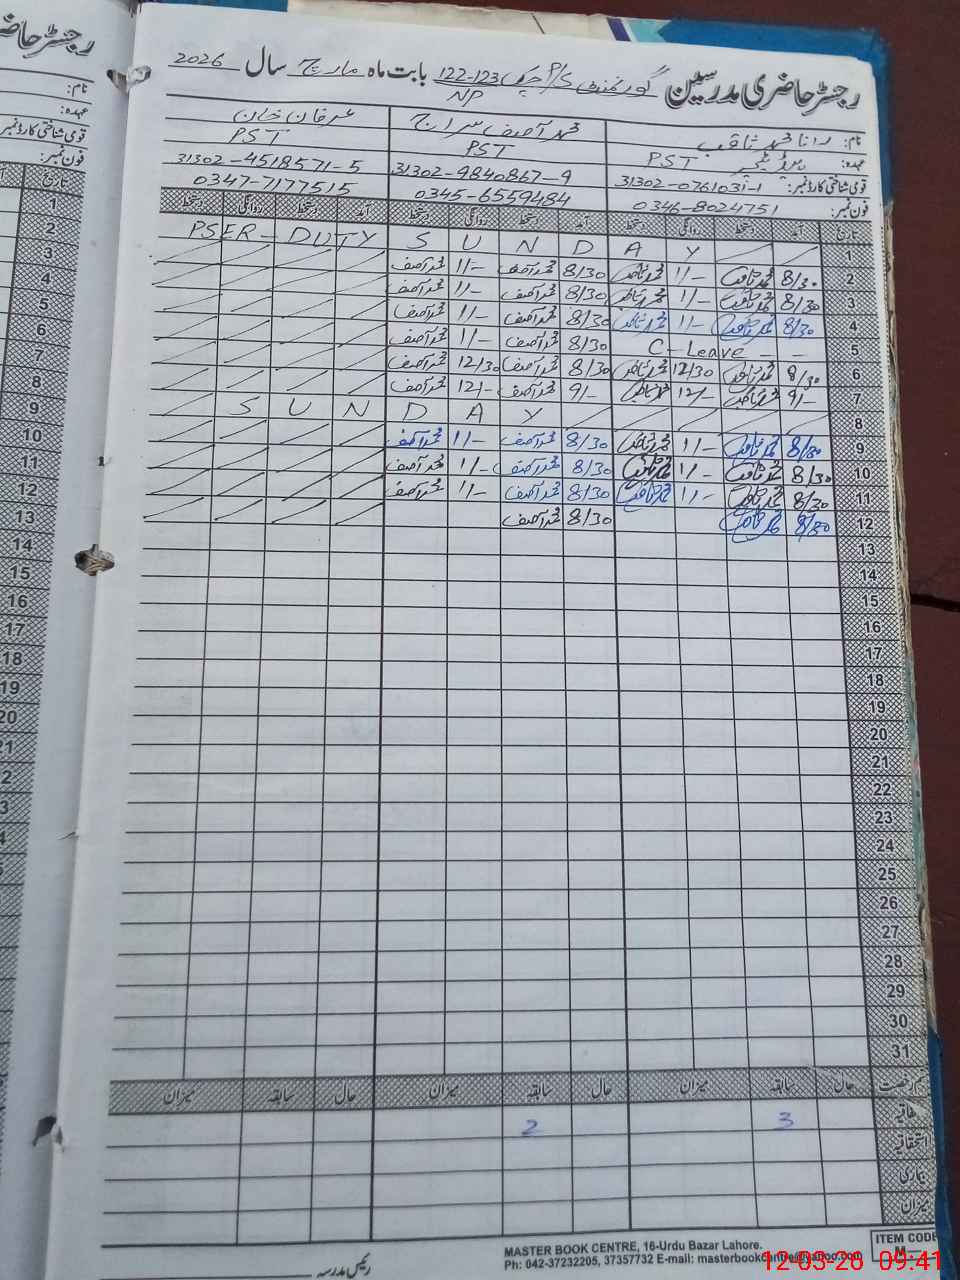 رجسٹر حاضری مدرسین گورنمنٹ P/S چک 122-123 NP بابت ماہ مارچ سال 2026
نام: رانا محمد ثاقب محمد آصف سراج عرفان خان
عہدہ: ہیڈ ٹیچر PST PST PST
قومی شناختی کارڈ نمبر: 31302-0761031-1 31302-9840867-9 31302-4518571-5
فون نمبر: 0346-8024751 0345-6559484 0347-7177515
تاریخ آمد دستخط روانگی دستخط آمد دستخط روانگی دستخط آمد دستخط روانگی دستخط
1 S U N D A Y PSER-DUTY
2 8/30 محمد ثاقب 11/- محمد ثاقب 8/30 محمد آصف 11/- محمد آصف
3 8/30 محمد ثاقب 11/- محمد ثاقب 8/30 محمد آصف 11/- محمد آصف
4 8/30 محمد ثاقب 11/- محمد ثاقب 8/30 محمد آصف 11/- محمد آصف
5 C-Leave - - 8/30 محمد آصف 11/- محمد آصف
6 8/30 محمد ثاقب 12/30 محمد ثاقب 8/30 محمد آصف 12/30 محمد آصف
7 9/- محمد ثاقب 12/- محمد ثاقب 9/- محمد آصف 12/- محمد آصف
8 S U N D A Y
9 8/30 محمد ثاقب 11/- محمد ثاقب 8/30 محمد آصف 11/- محمد آصف
10 8/30 محمد ثاقب 11/- محمد ثاقب 8/30 محمد آصف 11/- محمد آصف
11 8/30 محمد ثاقب 11/- محمد ثاقب 8/30 محمد آصف 11/- محمد آصف
12 8/30 محمد ثاقب 8/30 محمد آصف
13
14
15
16
17
18
19
20
21
22
23
24
25
26
27
28
29
30
31
قسم رخصت حال سابقہ میزان حال سابقہ میزان حال سابقہ میزان
اتفاقیہ 3 2
استحقاقیہ
بیماری
میزان
رئیس مدرسہ
MASTER BOOK CENTRE, 16-Urdu Bazar Lahore.
Ph: 042-37232205, 37357732 E-mail: masterbookcentre@yahoo.com
ITEM CODE
M-
12-03-26 09:41
رجسٹر حاضری
نام:
عہدہ:
قومی شناختی کارڈ نمبر
فون نمبر:
تاریخ
1
2
3
4
5
6
7
8
9
10
11
12
13
14
15
16
17
18
19
20